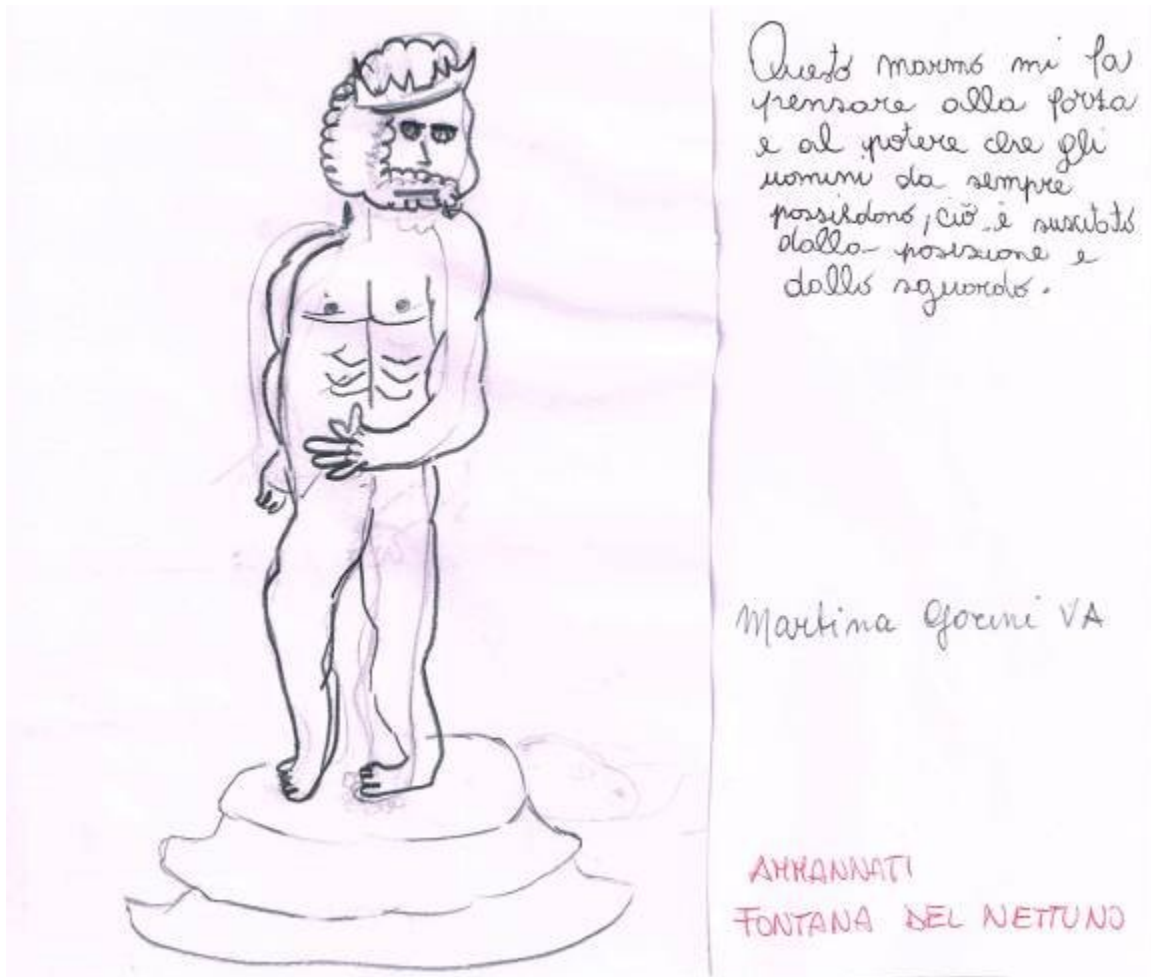 Questo marmo mi fa
pensare alla forza
e al potere che gli
uomini da sempre
possiedono, ciò è suscitato
dalla posizione e
dallo sguardo.
Martina Gorini VA
AMMANNATI
FONTANA DEL NETTUNO